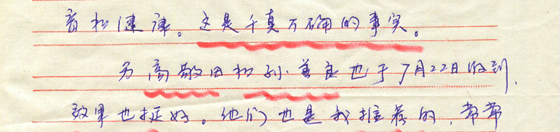 速课。这是千真万确的事实。
另高敬田和孙善良也于7月22日收到.
效果也挺好。他们也是我推荐的,常常